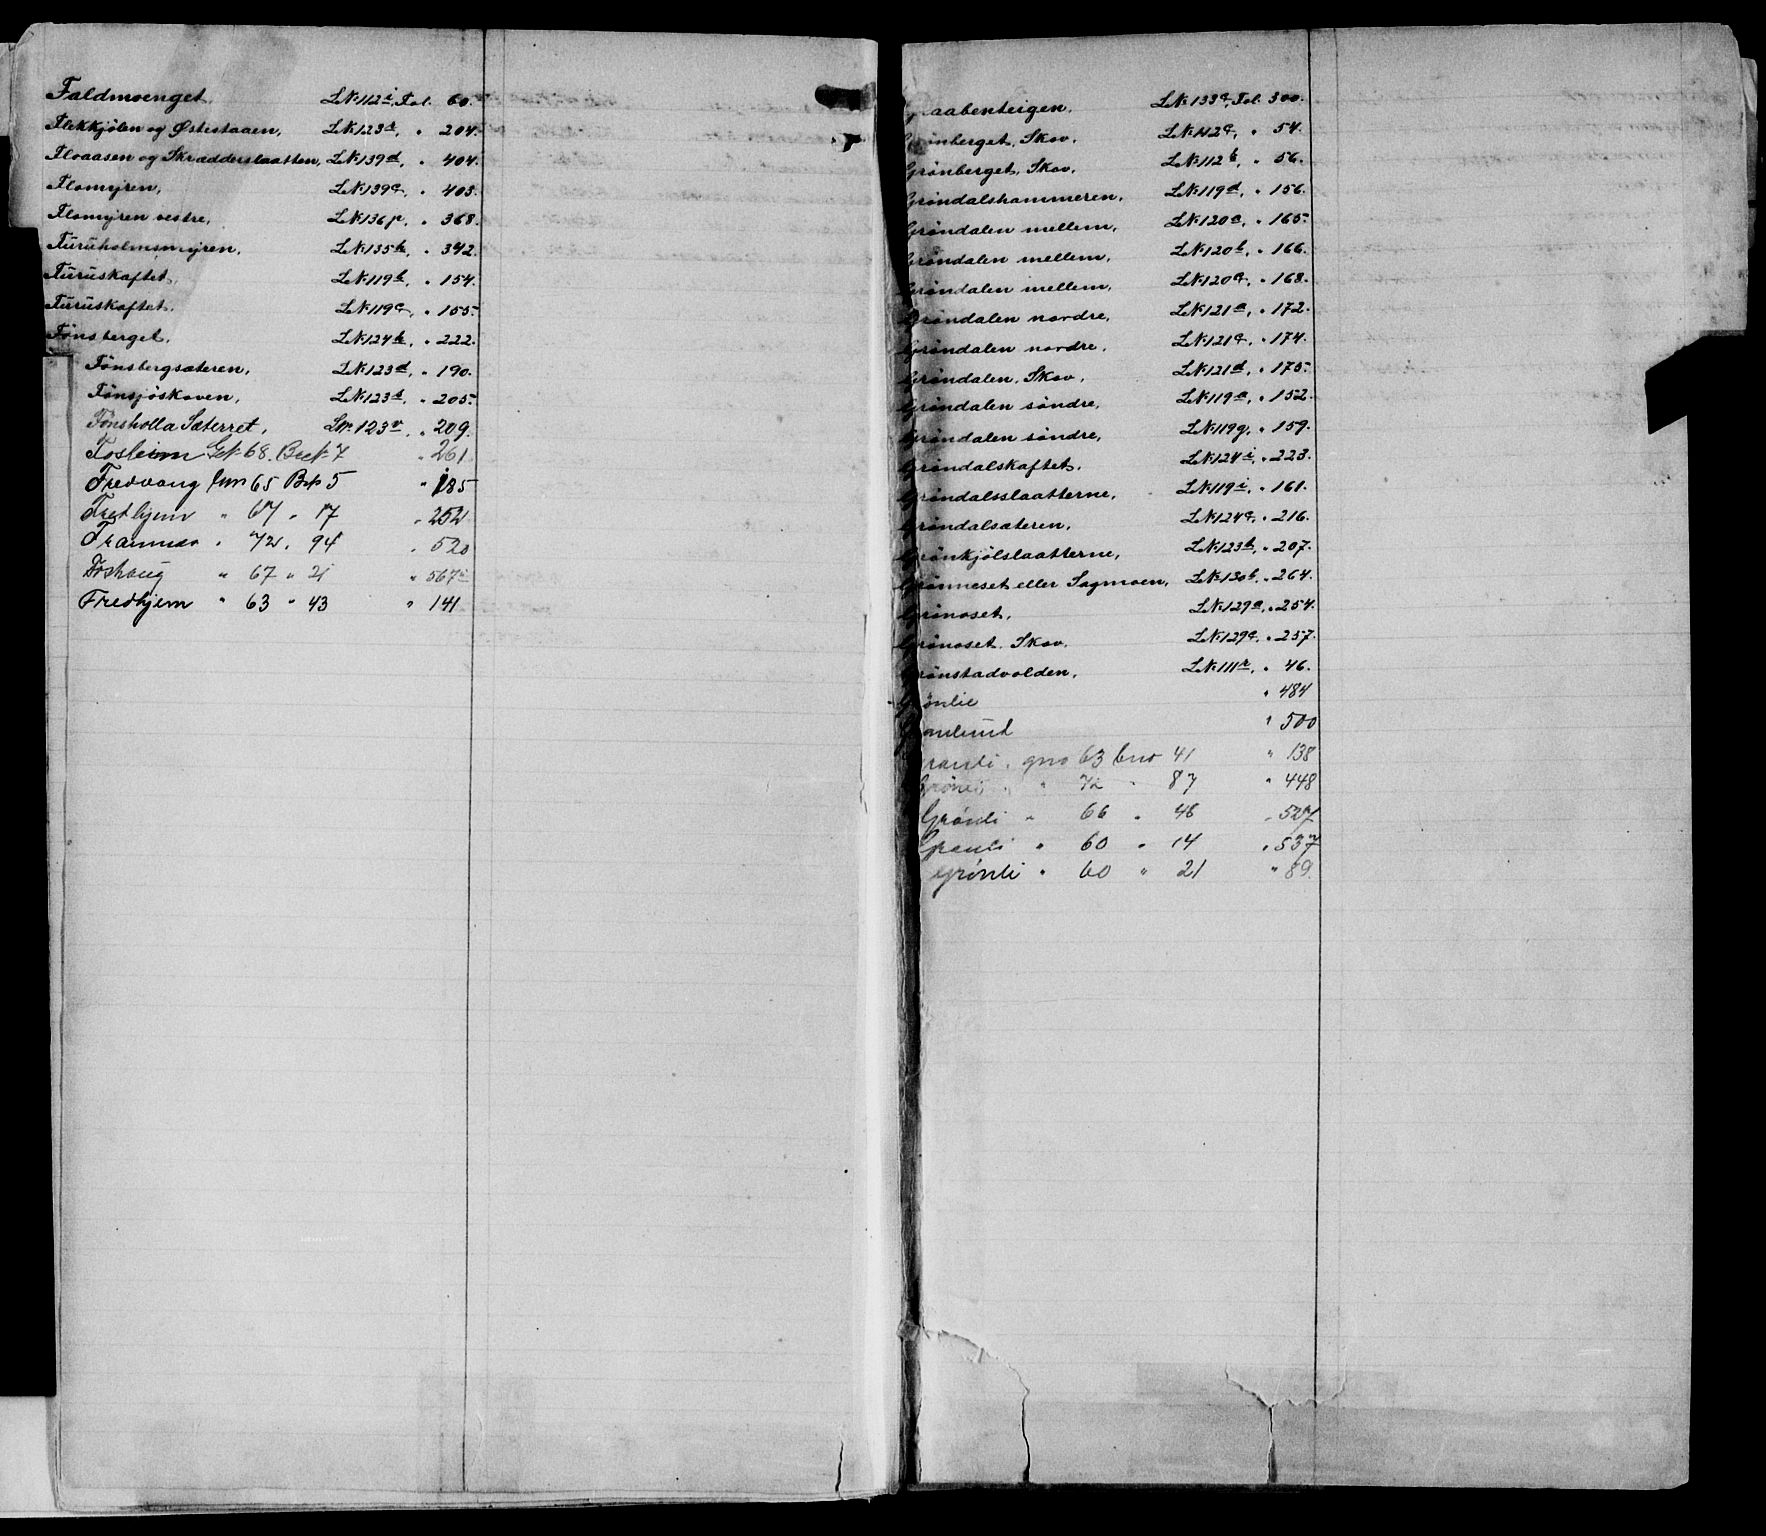 Faldmoenget, L.N. 112 i, Fol. 60.
Flekkjölen og Östestaaen, L.N. 123 s, " 204.
Floaasen og Skrædderslaatten, L.N. 139 d, " 404.
Flomyren, L.N. 139 c, " 403.
Flomyren vestre, L.N. 136 p, " 368.
Furuholmsmyren, L.N. 135 h, " 342.
Furuskaftet, L.N. 119 b, " 154.
Furuskaftet, L.N. 119 c, " 155.
Fönsberget, L.N. 124 h, " 222.
Fönsbergsæteren, L.N. 123 d, " 190.
Fönsjöskoven, L.N. 123 t, " 205.
Fönsholla Sæterret, L.N. 123 v, " 209.
Fosheim Gk. 68. Bk. 7 " 261
Fredvang Gno 65 B 5 " 185
Fredhjem " 67 " 17 " 252
Framnes " 72 " 94 " 520
Foshaug " 67 " 21 " 567
Fredhjem " 63 " 43 " 141
Graabenteigen, L.N. 133 c, Fol. 300.
Grönberget, Skov, L.N. 112 c, " 54.
Grönberget, Skov, L.N. 112 b, " 56.
Gröndalshammeren, L.N. 119 d, " 156.
Gröndalen mellem, L.N. 120 a, " 165.
Gröndalen mellem, L.N. 120 b, " 166.
Gröndalen mellem, L.N. 120 c, " 168.
Gröndalen nordre, L.N. 121 a, " 172.
Gröndalen nordre, L.N. 121 c, " 174.
Gröndalen, Skov, L.N. 121 d, " 175.
Gröndalen söndre, L.N. 119 a, " 152.
Gröndalen söndre, L.N. 119 g, " 159.
Gröndalskaftet, L.N. 124 i, " 223.
Gröndalsslaatterne, L.N. 119 i, " 161.
Gröndalsæteren, L.N. 124 c, " 216.
Grönkjölslaatterne, L.N. 123 h, " 207.
Grönneset eller Sagmoen, L.N. 130 b, " 264.
Grönoset, L.N. 129 a, " 254.
Grönoset, Skov, L.N. 129 c, " 257.
Grönstadvolden, L.N. 111 r, " 46.
Grönlie " 484
Granlund " 500
Granli, gno 63 bno 41 " 138
Grönli " " 72 " 87 " 448
Grønli " 66 " 48 " 527
Granli " 60 " 14 " 537
Grönli " 60 " 21 " 89.